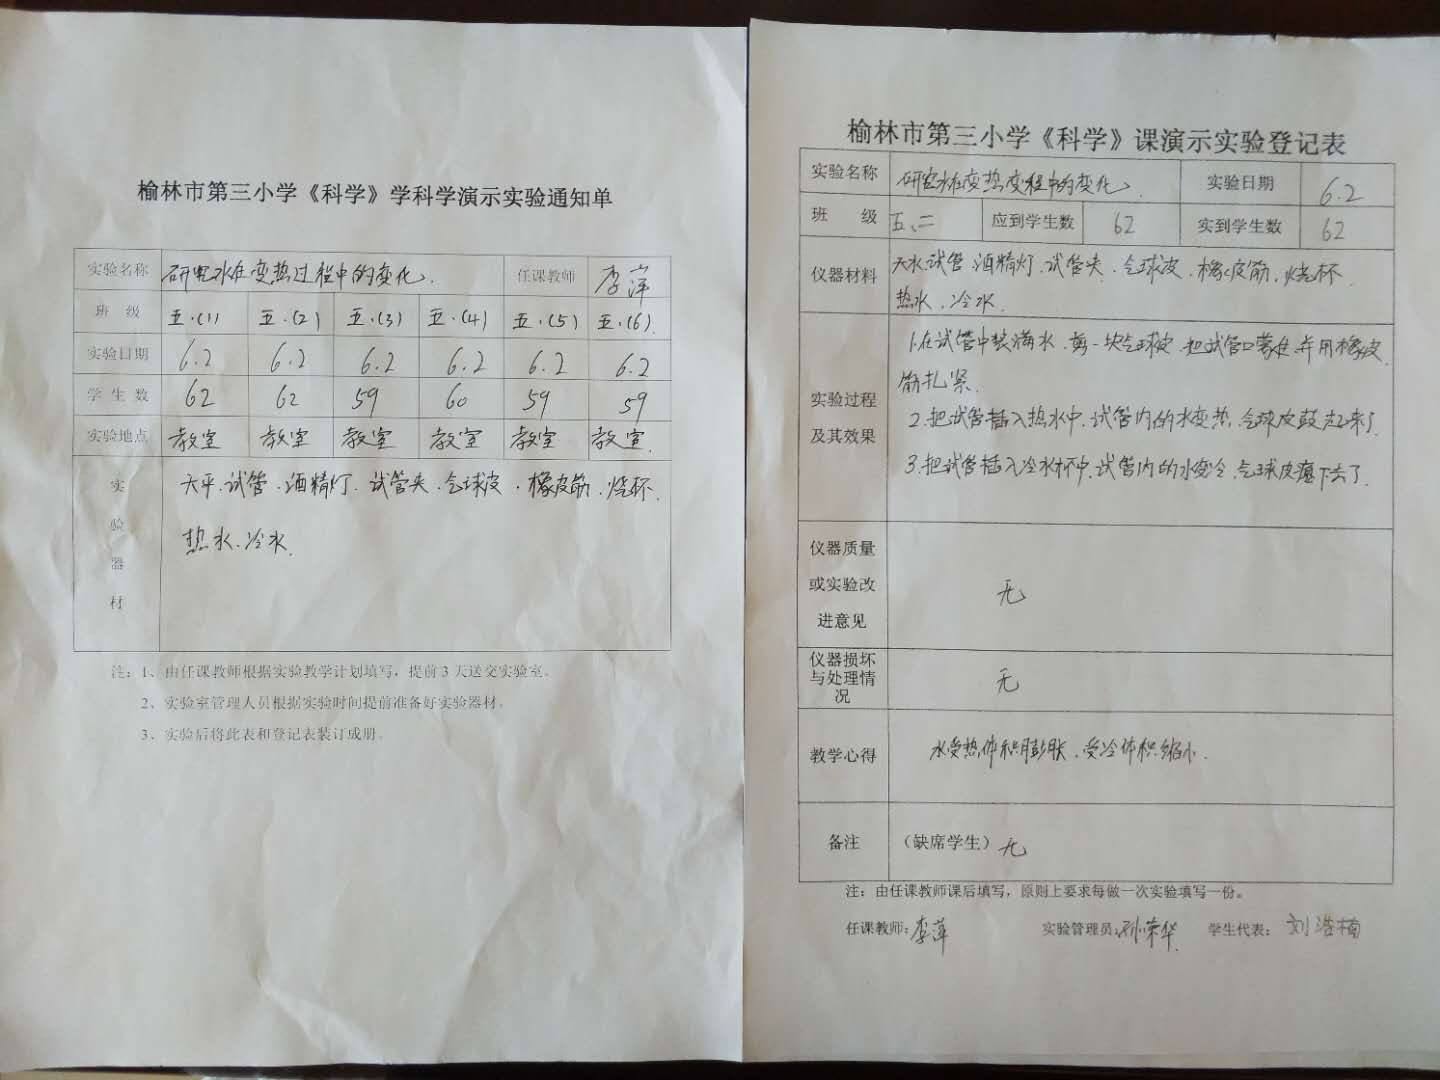 榆林市第三小学《科学》学科学演示实验通知单
实验名称 研究水在变热过程中的变化. 任课教师 李萍
班 级 五.(1) 五.(2) 五.(3) 五.(4) 五.(5) 五.(6).
实验日期 6.2 6.2 6.2 6.2 6.2 6.2
学生数 62 62 59 60 59 59
实验地点 教室 教室 教室 教室 教室 教室.
实验器材 天平.试管.酒精灯.试管夹.气球皮.橡皮筋.烧杯.
热水.冷水.
注:1、由任课教师根据实验教学计划填写,提前3天送交实验室。
2、实验室管理人员根据实验时间提前准备好实验器材。
3、实验后将此表和登记表装订成册。
榆林市第三小学《科学》课演示实验登记表
实验名称 研究水在变热变程中的变化、 实验日期 6.2
班 级 五、二 应到学生数 62 实到学生数 62
仪器材料 天水.试管.酒精灯.试管夹.气球皮.橡皮筋.烧杯
热水.冷水
实验过程及其效果
1.在试管中装满水.剪一块气球皮.把试管口蒙住.并用橡皮
筋扎紧.
2.把试管插入热水中.试管内的水变热.气球皮鼓起来了.
3.把试管插入冷水杯中.试管内的水变冷.气球皮瘪下去了.
仪器质量或实验改进意见 无
仪器损坏与处理情况 无
教学心得 水受热体积膨胀.受冷体积缩小.
备注 (缺席学生) 无
注:由任课教师课后填写,原则上要求每做一次实验填写一份。
任课教师:李萍 实验管理员:孙荣华 学生代表:刘浩楠